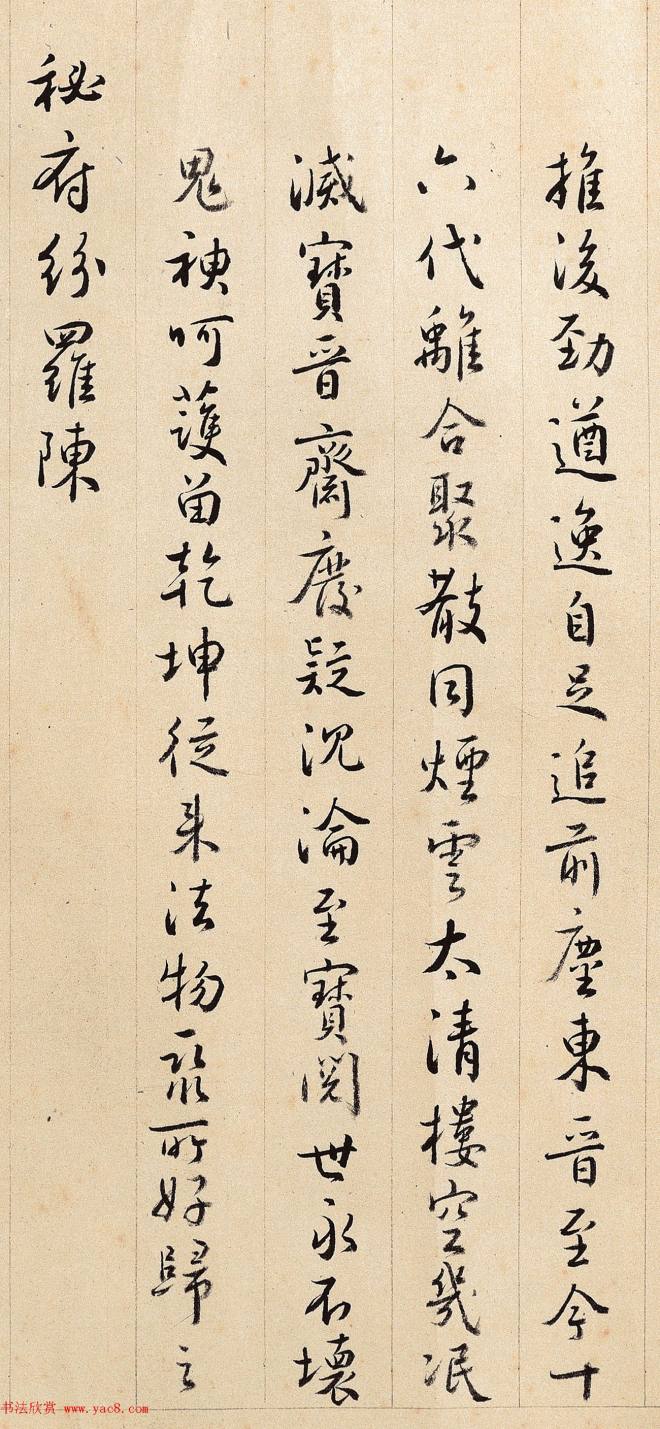 推後勁遒逸自足追前塵東晉至今十
六代離合聚散同煙雲太清樓空幾泯
滅寶晉齋廢疑沉淪至寶閱世永不壞
鬼神呵護留乾坤從來法物聚所好歸之
秘府紛羅陳
书法欣赏 www.yac8.com